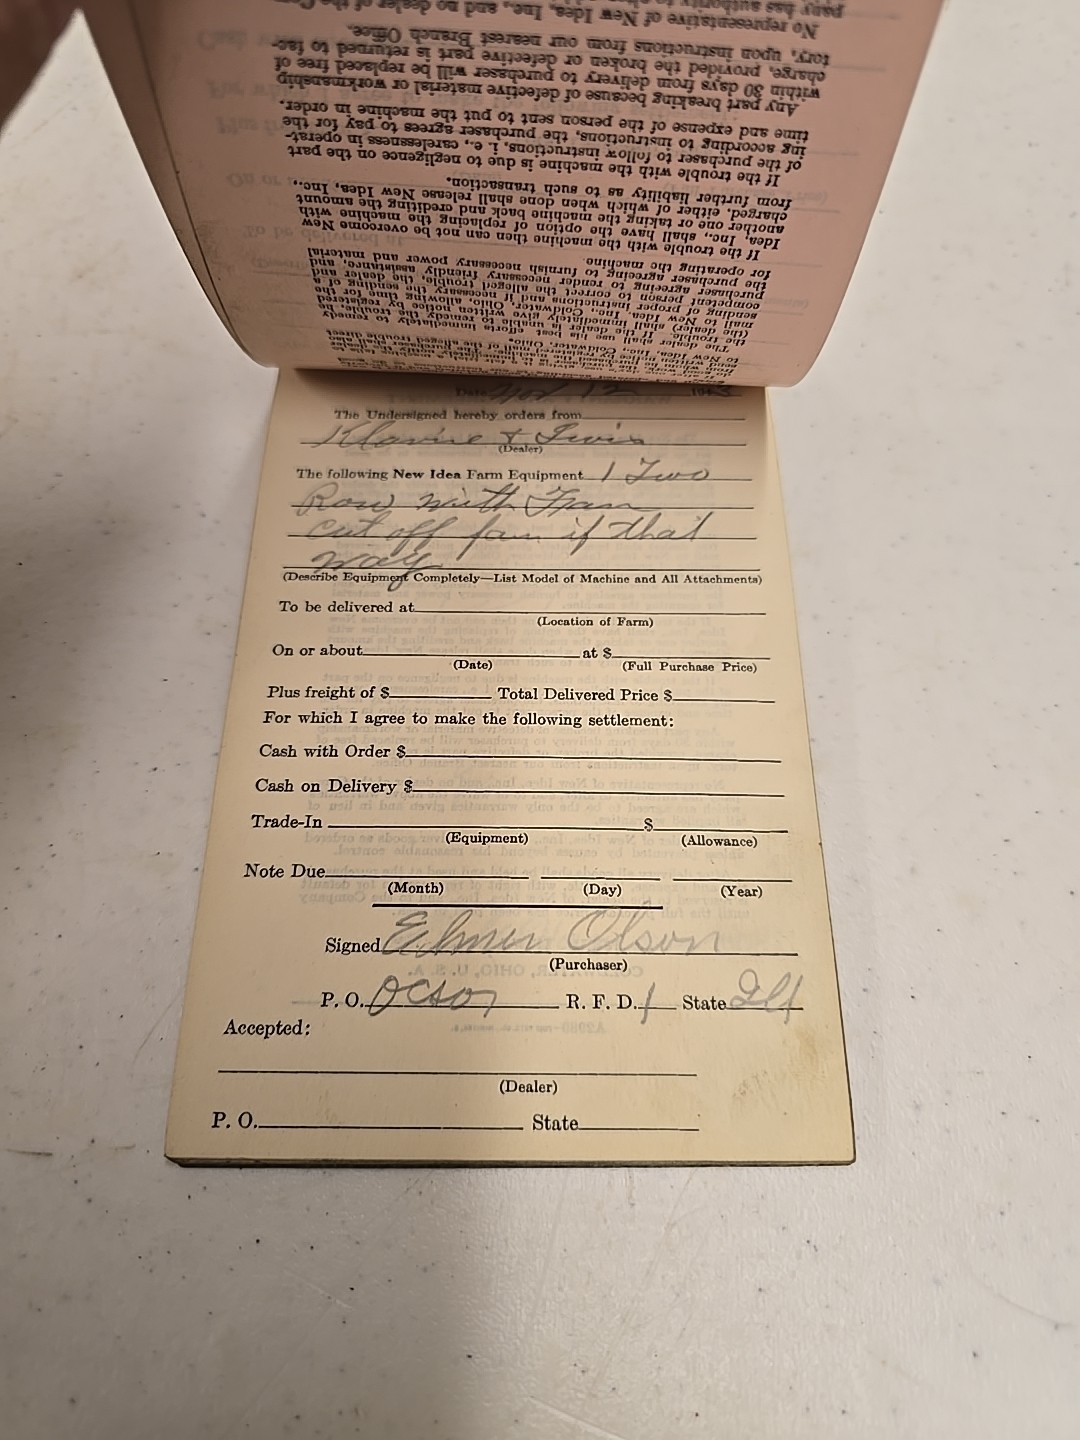 pany has authority to
No representative of New Idea, Inc., and no dealer of the
tory, upon instructions from our nearest Branch Office.
charge, provided the broken or defective part is returned to fac-
within 30 days from delivery to purchaser will be replaced free of
Any part breaking because of defective material or workmanship
time and expense of the person sent to put the machine in order.
ing according to instructions, the purchaser agrees to pay for the
of the purchaser to follow instructions, i. e., carelessness in operat-
If the trouble with the machine is due to negligence on the part
from further liability as to such transaction.
charged, either of which when done shall release New Idea, Inc.,
another one or taking the machine back and crediting the amount
Idea, Inc., shall have the option of replacing the machine with
If the trouble with the machine then can not be overcome New
for operating the machine.
the purchaser agreeing to furnish necessary power and material
purchaser agreeing to render necessary friendly assistance, and
competent person to correct the alleged trouble, the dealer and
sending of proper instructions and if necessary the sending of a
mail to New Idea, Inc., Coldwater, Ohio, allowing time for the
(the dealer) shall immediately give written notice by registered
the trouble. If the dealer is unable to remedy the trouble, he
The dealer shall use his best efforts immediately to remedy
to New Idea, Inc., Coldwater, Ohio.
Date Nov 12 194
The Undersigned hereby orders from
(Dealer)
The following New Idea Farm Equipment 1 Two
Row with
cut off fan if that
way
(Describe Equipment Completely—List Model of Machine and All Attachments)
To be delivered at
(Location of Farm)
On or about at $
(Date) (Full Purchase Price)
Plus freight of $ Total Delivered Price $
For which I agree to make the following settlement:
Cash with Order $
Cash on Delivery $
Trade-In $
(Equipment) (Allowance)
Note Due
(Month) (Day) (Year)
Signed Elmer Olson
(Purchaser)
P. O. R. F. D. 1 State Ill
Accepted:
(Dealer)
P. O. State